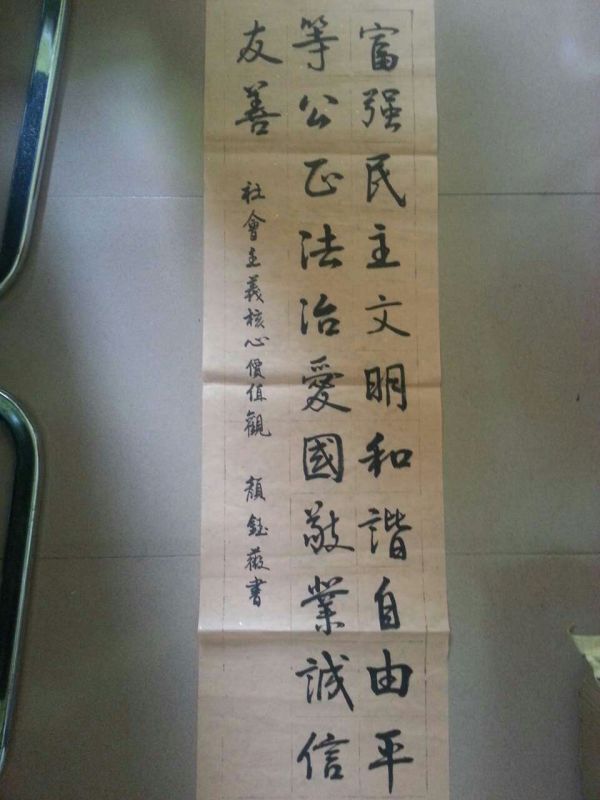 富强民主文明和谐自由平
等公正法治愛國敬業誠信
友善
社會主義核心價值觀 顏鈺薇書